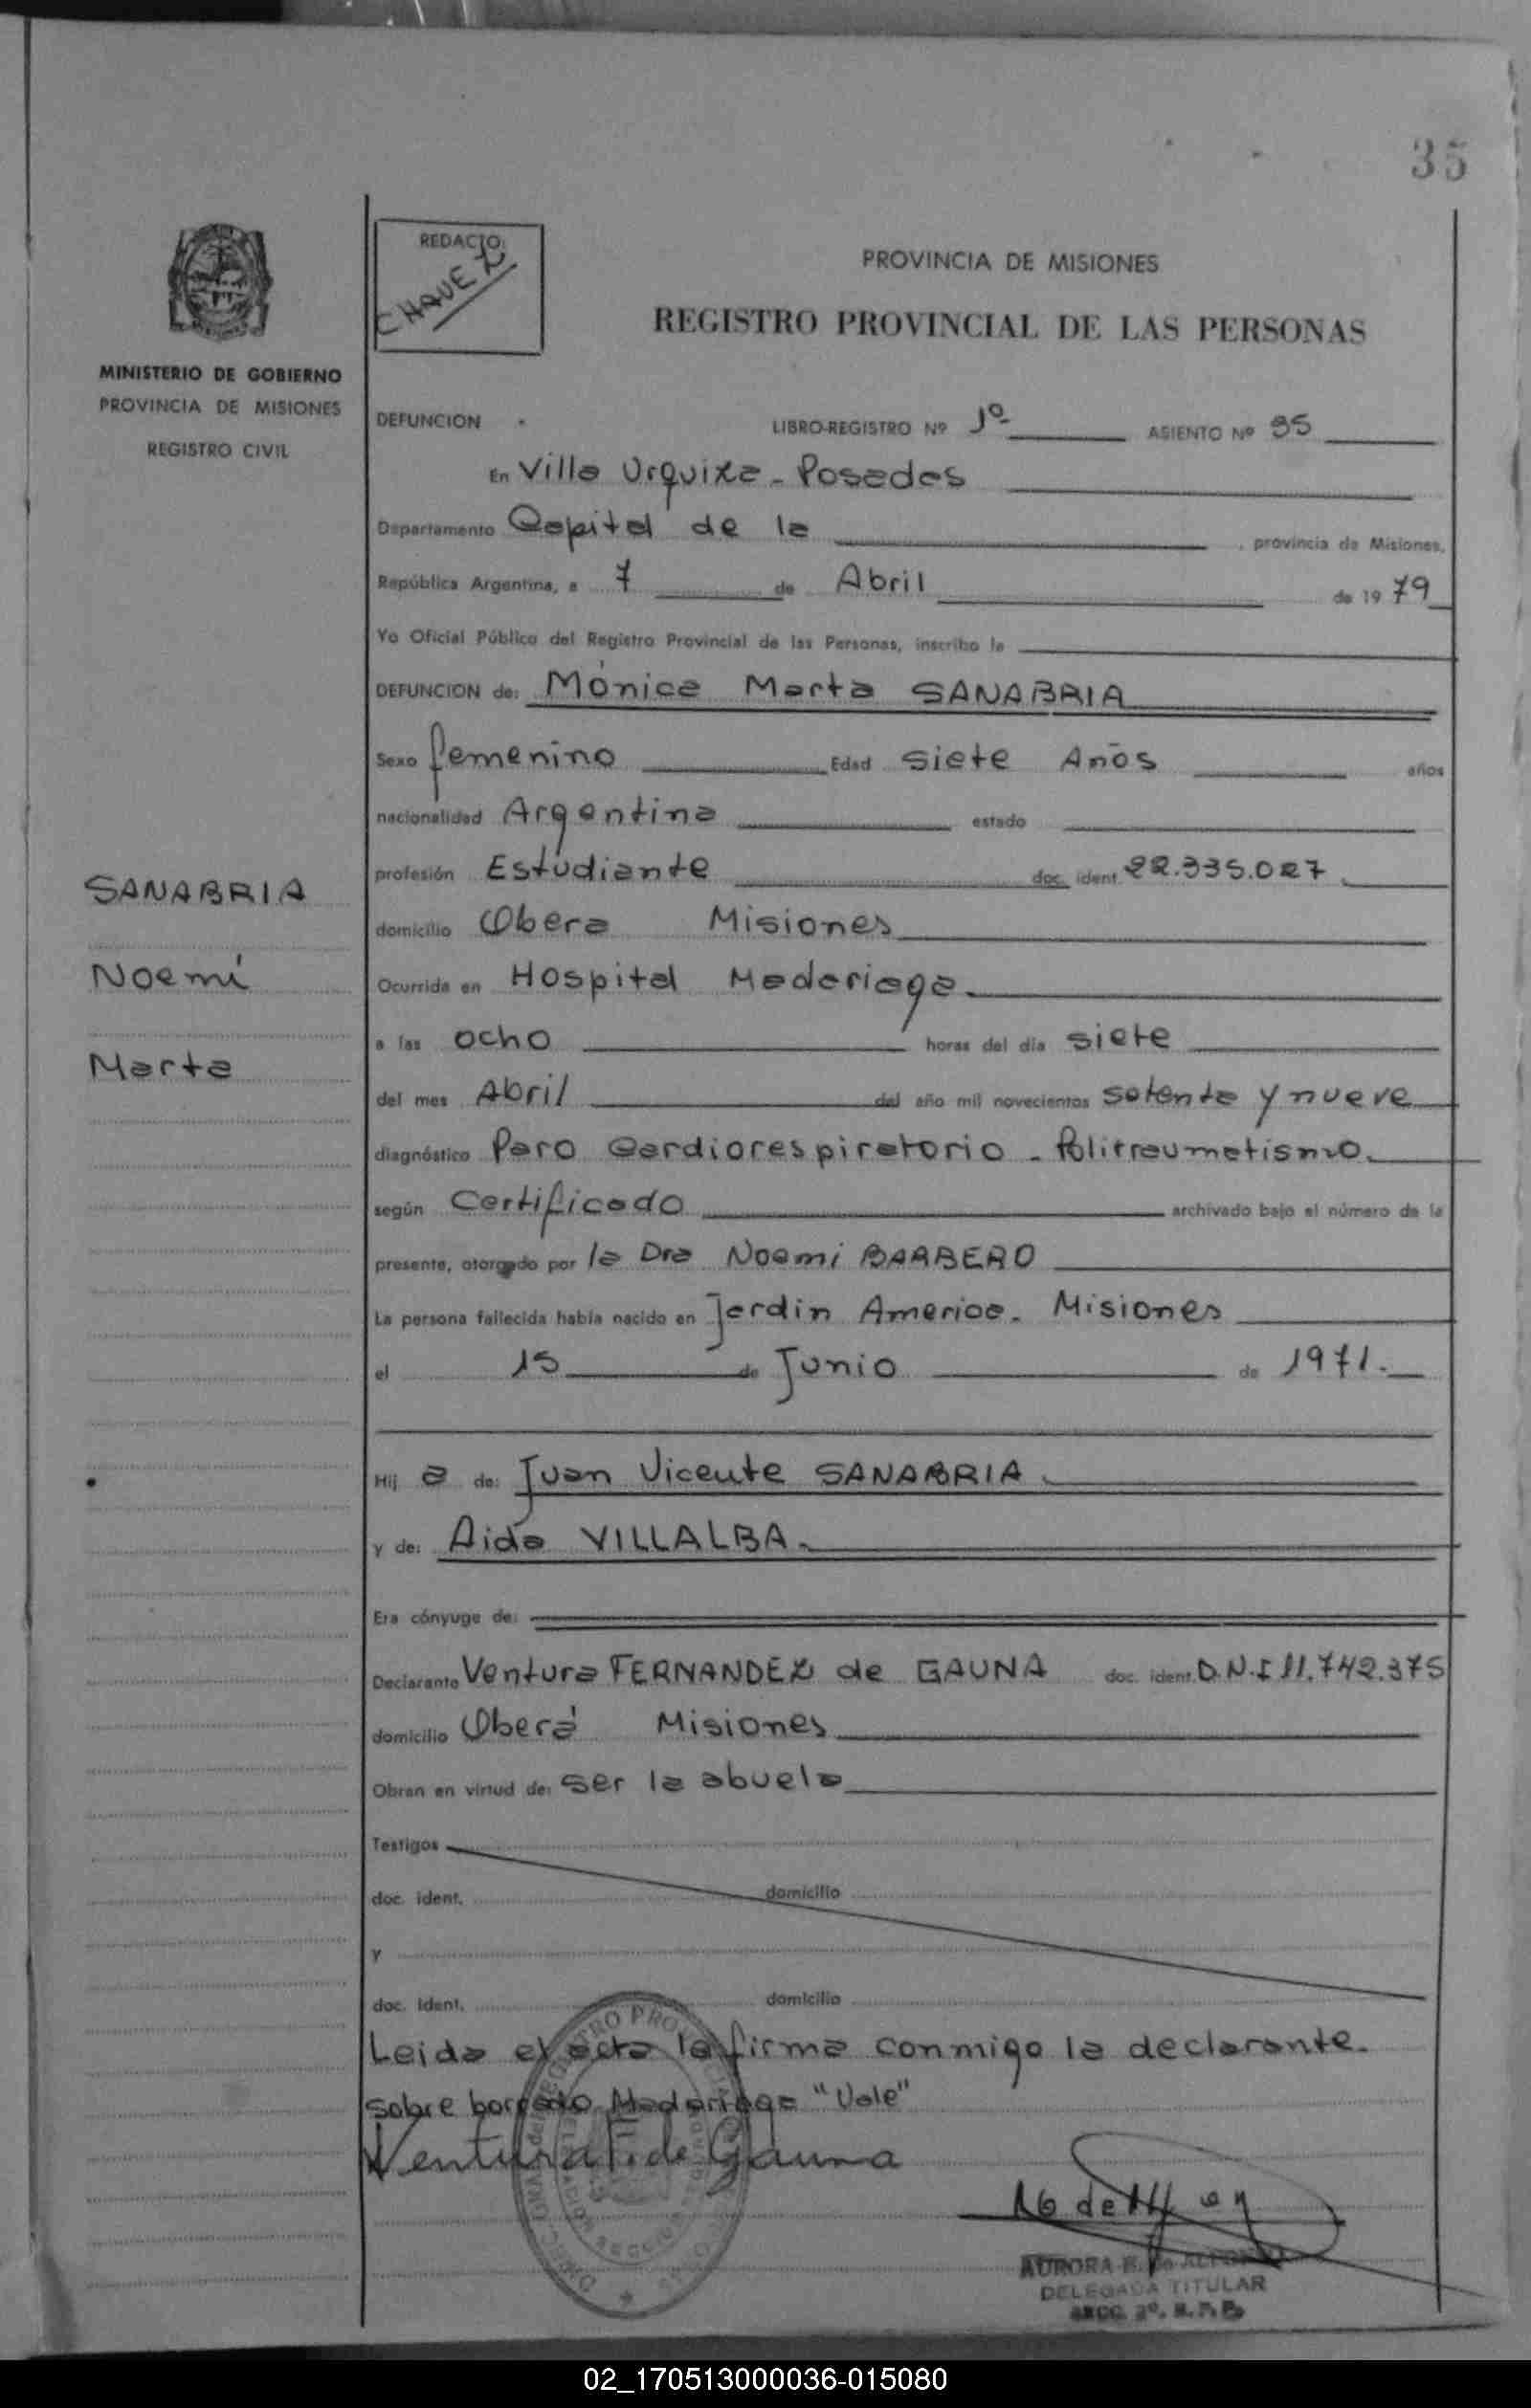 35
REDACTO:
CHAVEZ
PROVINCIA DE MISIONES
REGISTRO PROVINCIAL DE LAS PERSONAS
MINISTERIO DE GOBIERNO
PROVINCIA DE MISIONES
REGISTRO CIVIL
DEFUNCION LIBRO-REGISTRO Nº 1º ASIENTO Nº 35
En Villa Urquiza - Posadas
Departamento Capital de la , provincia de Misiones,
República Argentina, a 7 de Abril de 1979
Yo Oficial Público del Registro Provincial de las Personas, inscribo la
DEFUNCION de: Mónica Marta SANABRIA
Sexo femenino Edad siete Años años
nacionalidad Argentina estado
profesión Estudiante doc. ident. 22.335.027.
SANABRIA
domicilio Obera Misiones
Noemí
Ocurrida en Hospital Madariaga.
a las ocho horas del día siete
Marta
del mes Abril del año mil novecientos setenta y nueve
diagnóstico Paro Cardiorespiratorio - Politraumatismo.
según Certificado archivado bajo el número de la
presente, otorgado por la Dra Noemi BARBERO
La persona fallecida había nacido en Jardin America. Misiones
el 15 de Junio de 1971.
Hij a de: Juan Vicente SANABRIA.
y de: Aida VILLALBA.
Era cónyuge de:
Declarante Ventura FERNANDEZ de GAUNA doc. ident. D.N.I 11.742.375
domicilio Oberá Misiones
Obran en virtud de: ser la abuela
Testigos
doc. ident. domicilio
y
doc. ident. domicilio
Leida el acta la firma conmigo la declarante.
sobre borrado Madariaga "Vale"
Ventura F. de Gauna
AURORA
DELEGADA TITULAR
SECC. 2º. R. P. P.
02_170513000036-015080